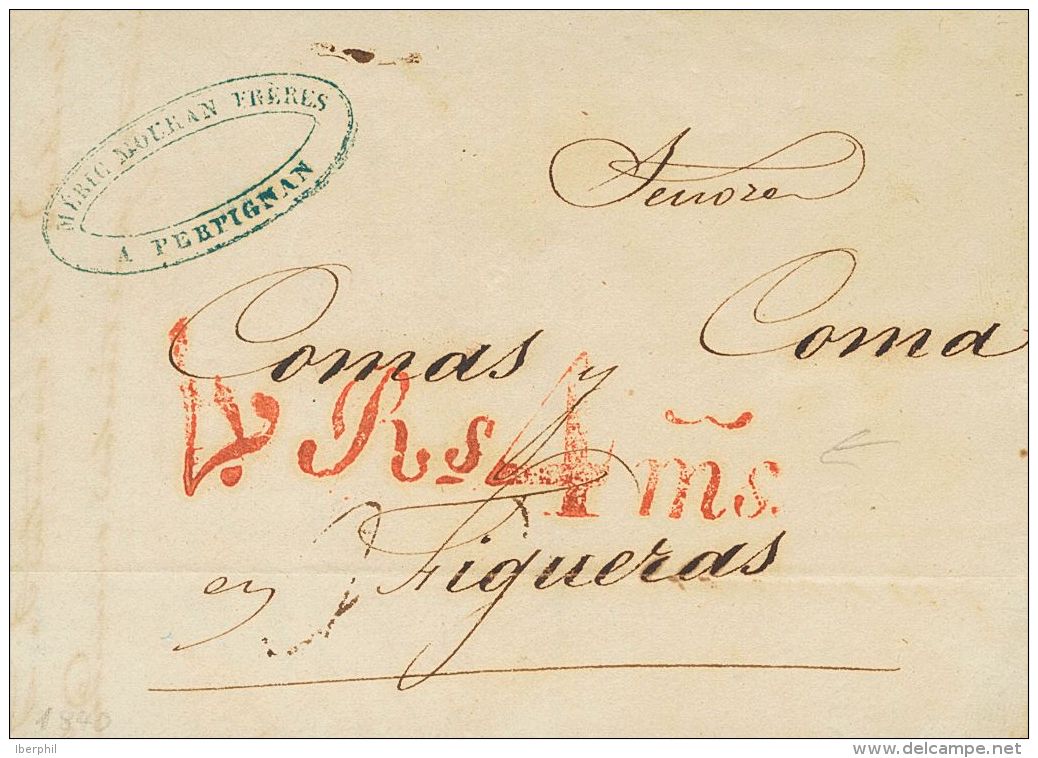 MÉRIC MOURAN FRÈRES
A PERPIGNAN
Senores
Comas y Coma
Rs. 4 m̃s.
en Figueras
1840
Iberphil
www.delcampe.net